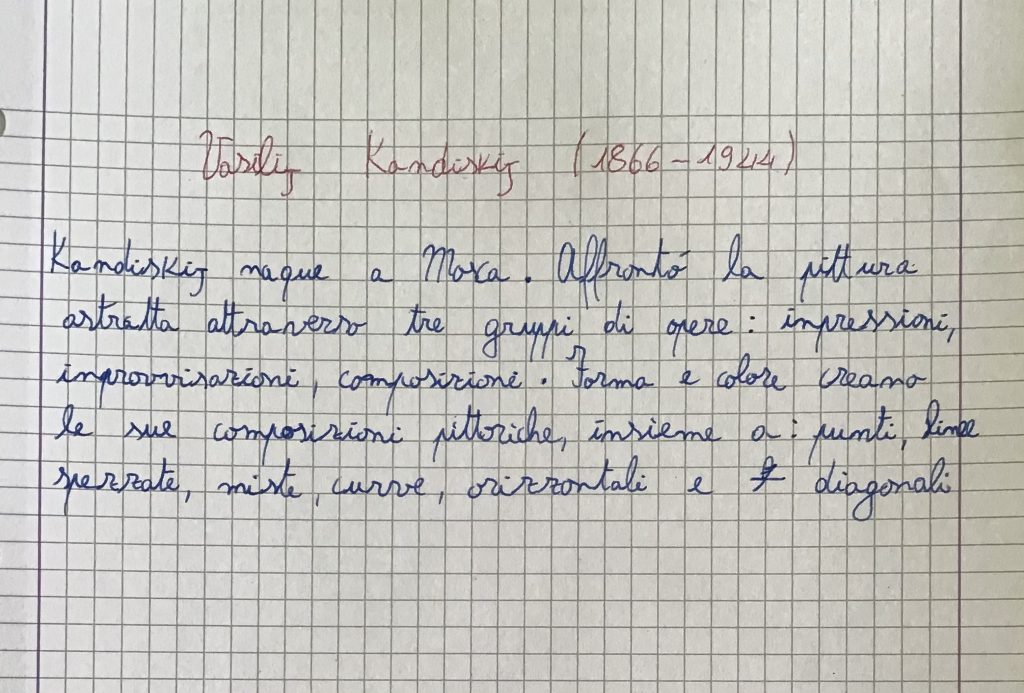 Vasilij Kandiskij (1866-1944)
Kandiskij naque a Mosca. Affrontò la pittura
astratta attraverso tre gruppi di opere: impressioni,
improvvisazioni, composizioni. Forma e colore creano
le sue composizioni pittoriche, insieme a: punti, linee
spezzate, miste, curve, orizzontali e diagonali